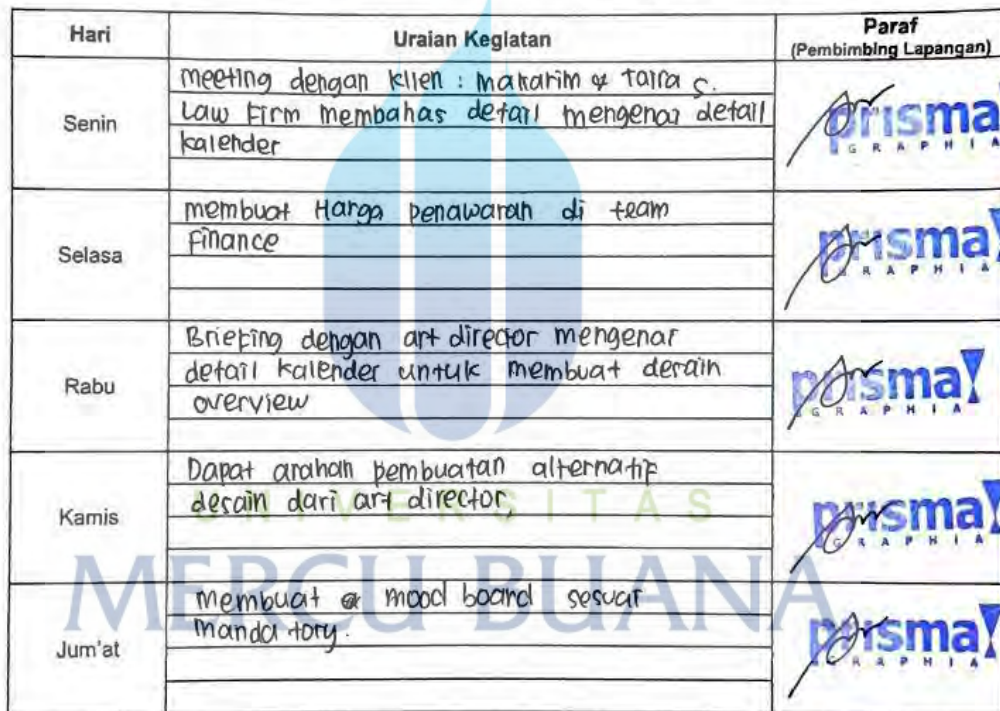 Hari Uraian Kegiatan Paraf
(Pembimbing Lapangan)
Senin
meeting dengan klien : makarim & taira s.
Law Firm membahas detail mengenai detail
kalender
prisma
GRAPHIA
Selasa
membuat Harga penawaran di team
Finance
prisma
GRAPHIA
Rabu
Briefing dengan art director mengenai
detail kalender untuk membuat desain
overview
prisma
GRAPHIA
Kamis
Dapat arahan pembuatan alternatif
desain dari art director,
UNIVERSITAS
prisma
GRAPHIA
MERCU BUANA
Jum'at
membuat mood board sesuai
mandatory.
prisma
GRAPHIA